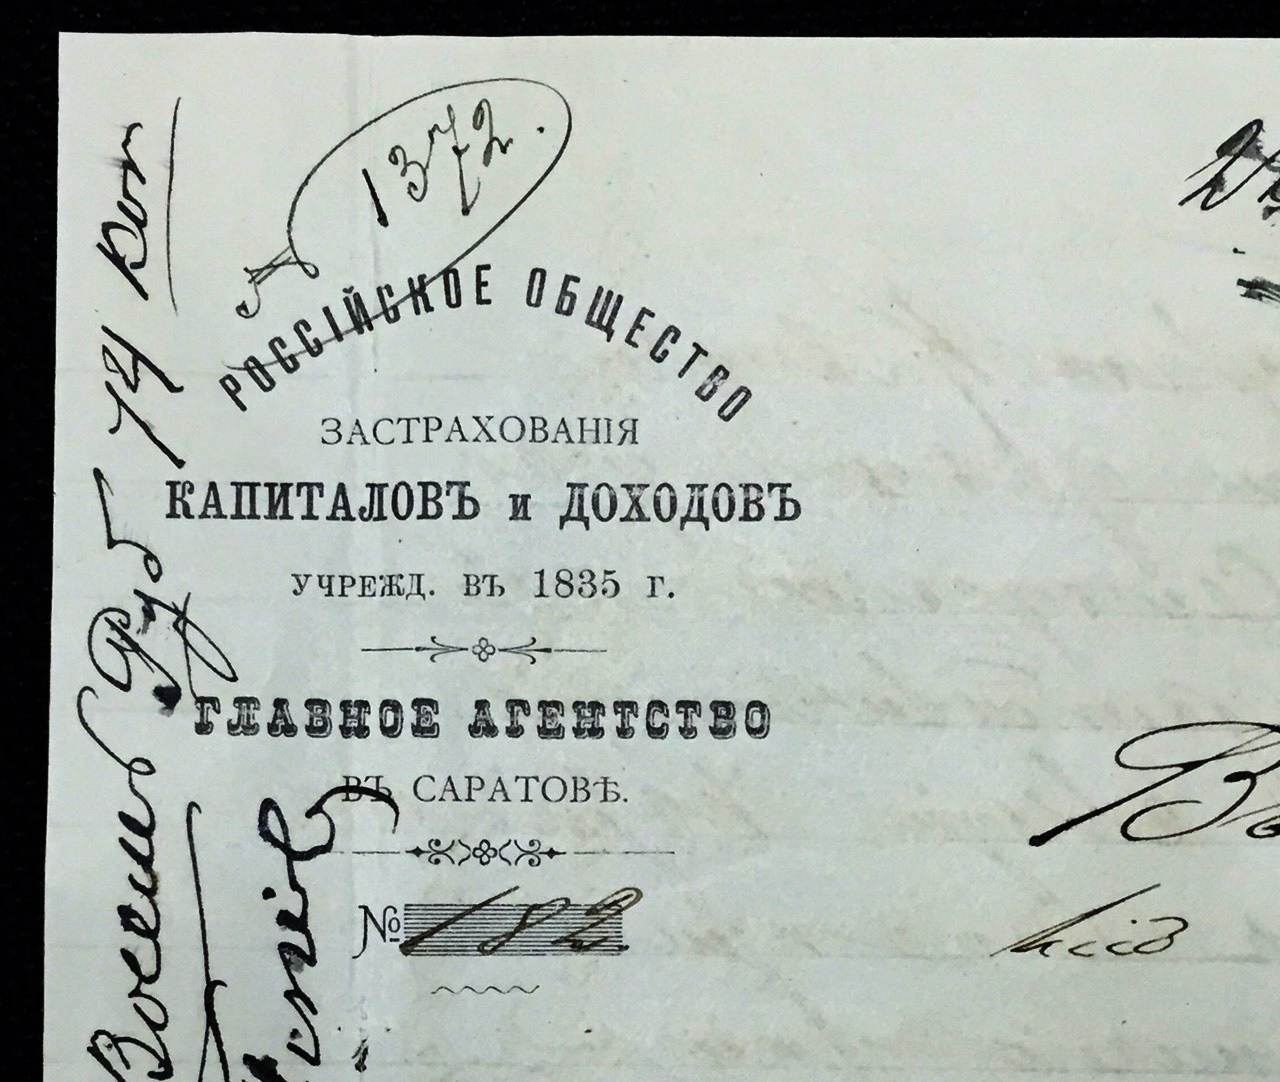 1372.
РОССІЙСКОЕ ОБЩЕСТВО
ЗАСТРАХОВАНІЯ
КАПИТАЛОВЪ и ДОХОДОВЪ
УЧРЕЖД. ВЪ 1835 г.
ГЛАВНОЕ АГЕНТСТВО
ВЪ САРАТОВѢ.
№ 182
Восемь руб 74 коп